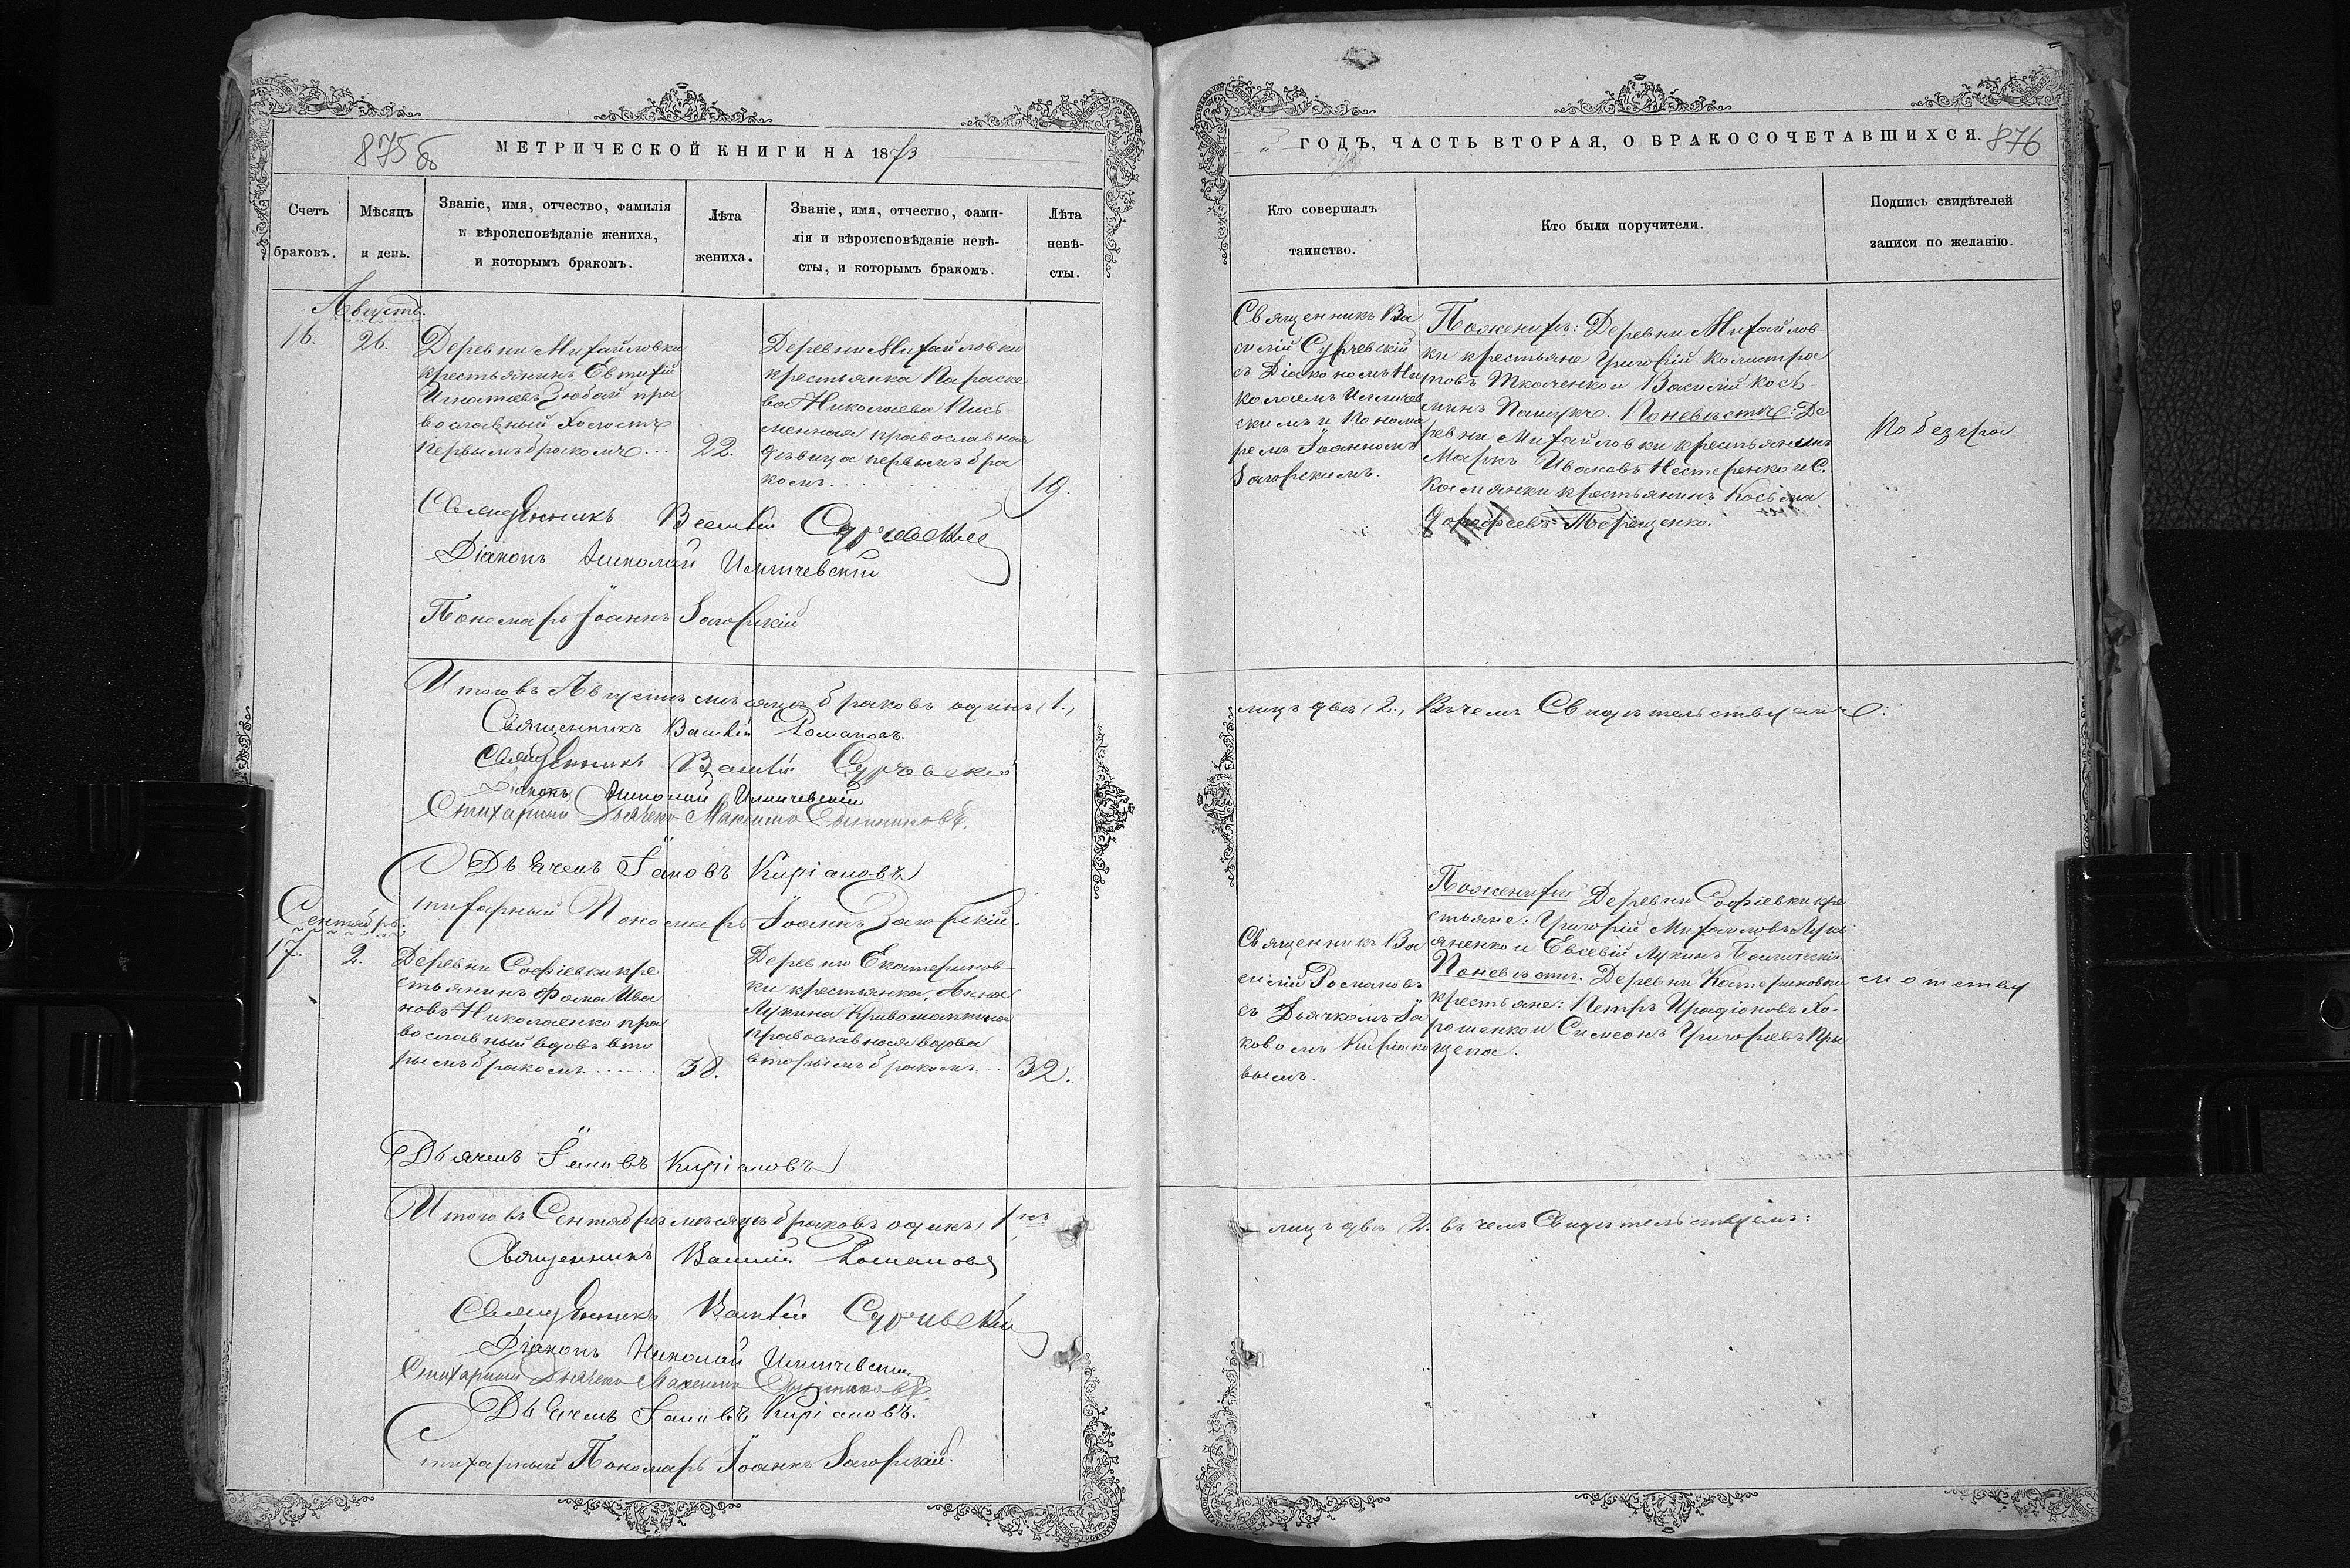 875 об
МЕТРИЧЕСКОЙ КНИГИ НА 1873
Счетъ браковъ.
Мѣсяцъ и день.
Званіе, имя, отчество, фамилія
и вѣроисповѣданіе жениха,
и которымъ бракомъ.
Лѣта жениха.
Званіе, имя, отчество, фами-
лія и вѣроисповѣданіе невѣ-
сты, и которымъ бракомъ.
Лѣта невѣ-
сты.
Августъ.
16.
26.
Деревни Михайловки
крестьянинъ Евтихій
Игнатіевъ Зюбай пра
вославный холостъ
первымъ бракомъ...
22.
Деревни Михайловки
крестьянка Параске
ва Николаева Пись-
менная православная
дѣвица первымъ бра
комъ
19.
Священникъ Василій Сурчевскій
Діаконъ Николай Илличевскій
Пономарь Іоаннъ Загорскій
Итого въ Августѣ мѣсяцѣ браковъ одинъ, 1.,
Священникъ Василій Романовъ.
Священникъ Василій Сурчевскій
Діаконъ Николай Илличевскій
Стихарный Дьячекъ Максимъ
Дьячекъ Іаковъ Киріаковъ
Стихарный Пономарь Іоаннъ Загорскій.
Сентябрь.
17.
2.
Деревни Софіевки кре
стьянинъ Фома Ива
новъ Николаенко пра
вославный вдовъ вто
рымъ бракомъ
38.
Деревни Екатеринов-
ки крестьянка, Анна
Лукина Кривошапкина
православная вдова
вторымъ бракомъ...
32.
Дьячекъ Іаковъ Киріаковъ
Итого въ Сентябрѣ мѣсяцѣ браковъ одинъ, 1нъ
Священникъ Василій Романовъ
Священникъ Василій Сурчевскій
Діаконъ Николай Илличевскій
Стихарный Дьячекъ Максимъ
Дьячекъ Іаковъ Киріаковъ.
Стихарный Пономарь Іоаннъ Загорскій.
3 ГОДЪ, ЧАСТЬ ВТОРАЯ, О БРАКОСОЧЕТАВШИХСЯ.
876
Кто совершалъ
таинство.
Кто были поручители.
Подпись свидѣтелей
записи по желанію.
Священникъ Ва
силій Сурчевскій
съ Діакономъ Ни
колаемъ Илличев
скимъ и Понома
ремъ Іоанномъ
Загорскимъ.
По женихѣ: Деревни Михайлов-
ки крестьяне Григорій Калистра
товъ Ткаченко и Василій Косъ-
минъ Пащукъ. По невѣстѣ: Де
ревни Михайловки крестьянинъ
Маркъ Ивановъ Нестеренко и С.
Камянки крестьянинъ Косьма
Дорофеевъ Терещенко.
По безгра
лицъ два, 2., Въ чемъ Свидѣтельствуемъ:
Священникъ Ва
силій Романовъ
съ Дьячкомъ Іа
ковомъ Киріако
вымъ.
По женихѣ Деревни Софіевки кре
стьяне: Григорій Михаиловъ Лукь
яненко и Евсевій Лукинъ
По невѣстѣ: Деревни Катериновки
крестьяне: Петръ Иродіоновъ Хо-
рошенко и Симеонъ Григоріевъ При
щепа.
мотству
лицъ два 2. въ чемъ Свидѣтельствуемъ: